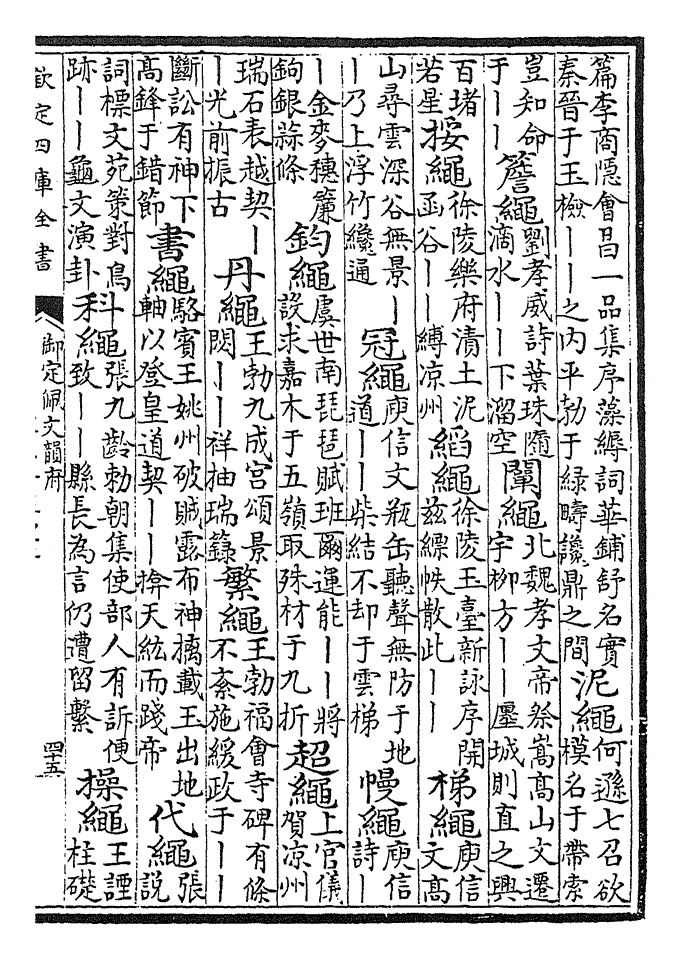 篇李商隱會昌一品集序藻縟詞華鋪舒名實秦晉于玉檢丨丨之内平勃于緑疇讒鼎之間泥繩何遜七召欲模名于帶索
豈知命于丨丨簷繩劉孝威詩葉珠隨滴水丨丨下溜空闡繩北魏孝文帝祭嵩高山文遷宇柳方丨丨鄽城則直之興
百堵若星挼繩徐陵樂府漬土泥函谷丨丨縛凉州縚繩徐陵玉臺新詠序開兹縹帙散此丨丨梯繩庾信文高
山尋雲深谷無景丨丨乃上浮竹纔通冠繩庾信文瓶缶聽聲無防于地道丨丨柴結不却于雲梯幔繩庾信詩丨
丨金麥穗簾鉤銀蒜條鈞繩虞世南琵琶賦班爾運能丨丨將設求嘉木于五嶺取殊材于九折超繩上官儀賀凉州
瑞石表越契丨丨光前振古丹繩王勃九成宫頌景閟丨丨祥抽瑞籙繁繩王勃福會寺碑有條不紊施緩政于丨丨
斷訟有神下高鋒于錯節書繩駱賓王姚州破賊露布神摛載玉出地軸以登皇道契丨丨揜天紘而踐帝代繩張說
詞標文苑策對鳥跡丨丨龜文演卦科繩張九齡勅朝集使部人有訴便致丨丨縣長為言仍遭留繫操繩王諲柱礎
欽定四庫全書
御定佩文韻府
四十五